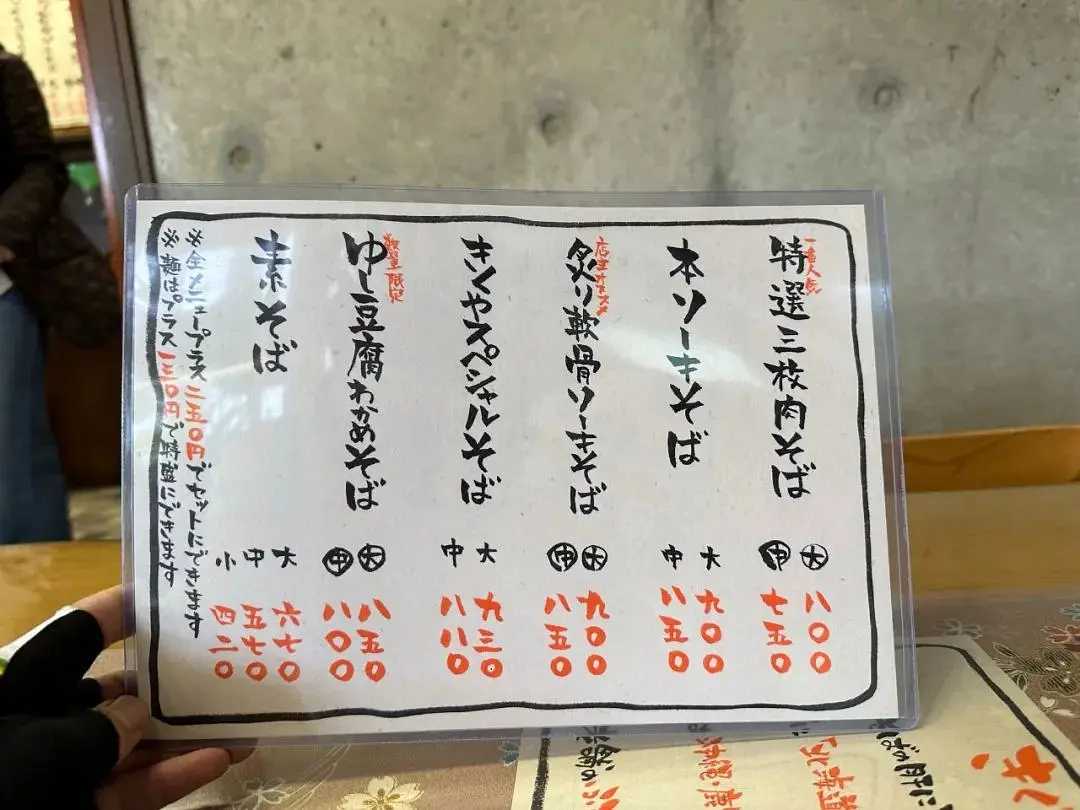 一番人気
特選三枚肉そば
大 八〇〇
中 七五〇
本ソーキそば
大 九〇〇
中 八五〇
店主オススメ
炙り軟骨ソーキそば
大 九〇〇
中 八五〇
きくやスペシャルそば
大 九三〇
中 八八〇
数量限定
ゆし豆腐わかめそば
大 八五〇
中 八〇〇
素そば
大 六七〇
中 五七〇
小 四二〇
※全メニュープラス二五〇円でセットにできます
※麺はプラス一三〇円で特盛にできます
北海道
沖縄・